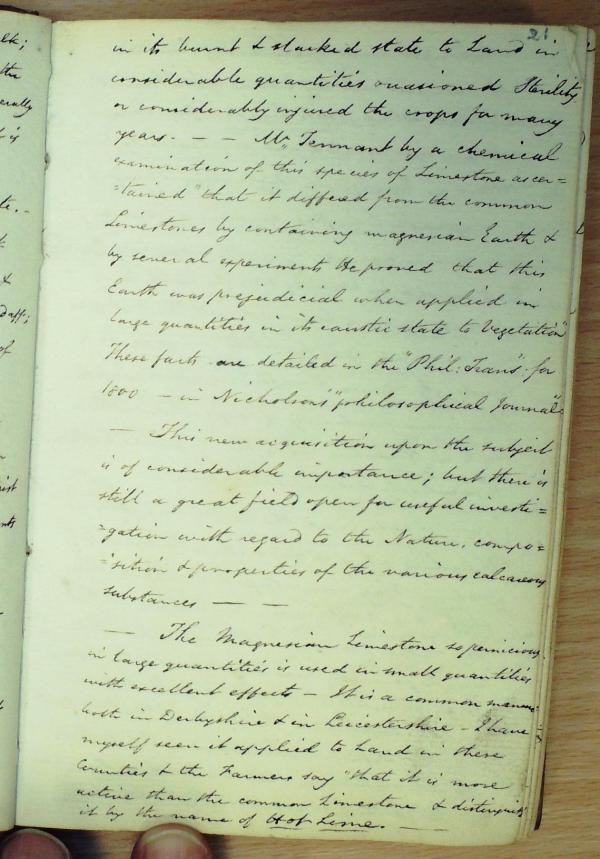 21.
in its burnt & slacked state to Land in
considerable quantities occasioned Sterility
or considerably injured the crops for many
years. — — Mr. Tennant by a chemical
examination of this species of Limestone ascer=
=tained "that it differed from the common
Limestones by containing magnesian Earth &
by several experiments He proved that this
Earth was prejudicial when applied in
large quantities in its caustic state to Vegetation"
These facts are detailed in the "Phil: Trans". for
1800 — in Nicholson's "philosophical Journal".
— This new acquisition upon the subject
is of considerable importance; but there is
still a great field open for useful investi=
=gation with regard to the Nature, compo=
=sition & properties of the various calcareous
substances — —
— The Magnesian Limestone so pernicious
in large quantities is used in small quantities
with excellent effects — It is a common manure
both in Derbyshire & in Leicestershire — I have
myself seen it applied to Land in these
Counties & the Farmers say "that it is more
active than the common Limestone & distinguish
it by the name of Hot Lime. —